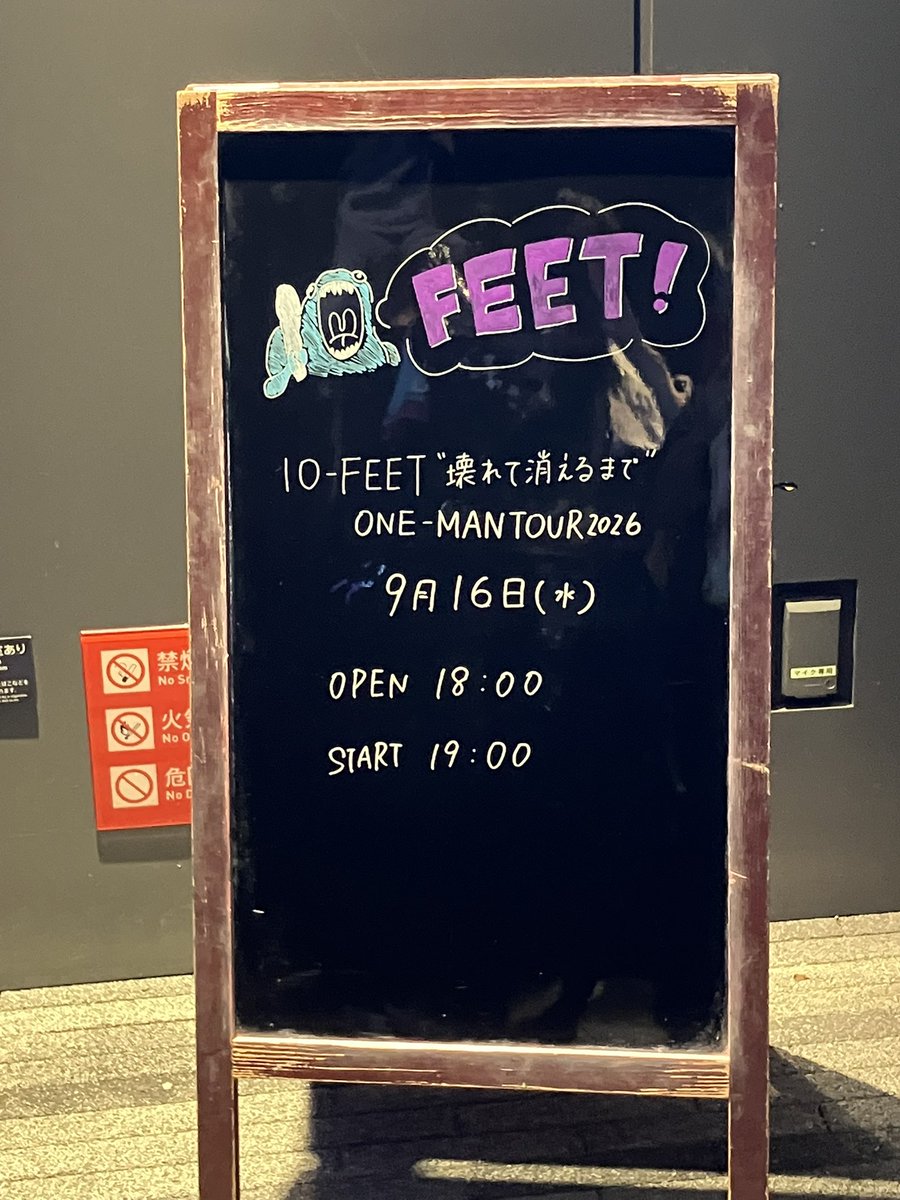 FEET!
10-FEET "壊れて消えるまで"
ONE-MAN TOUR 2026
9月16日(水)
OPEN 18:00
START 19:00
あり
禁
No
火
No
危
No
マイク専用